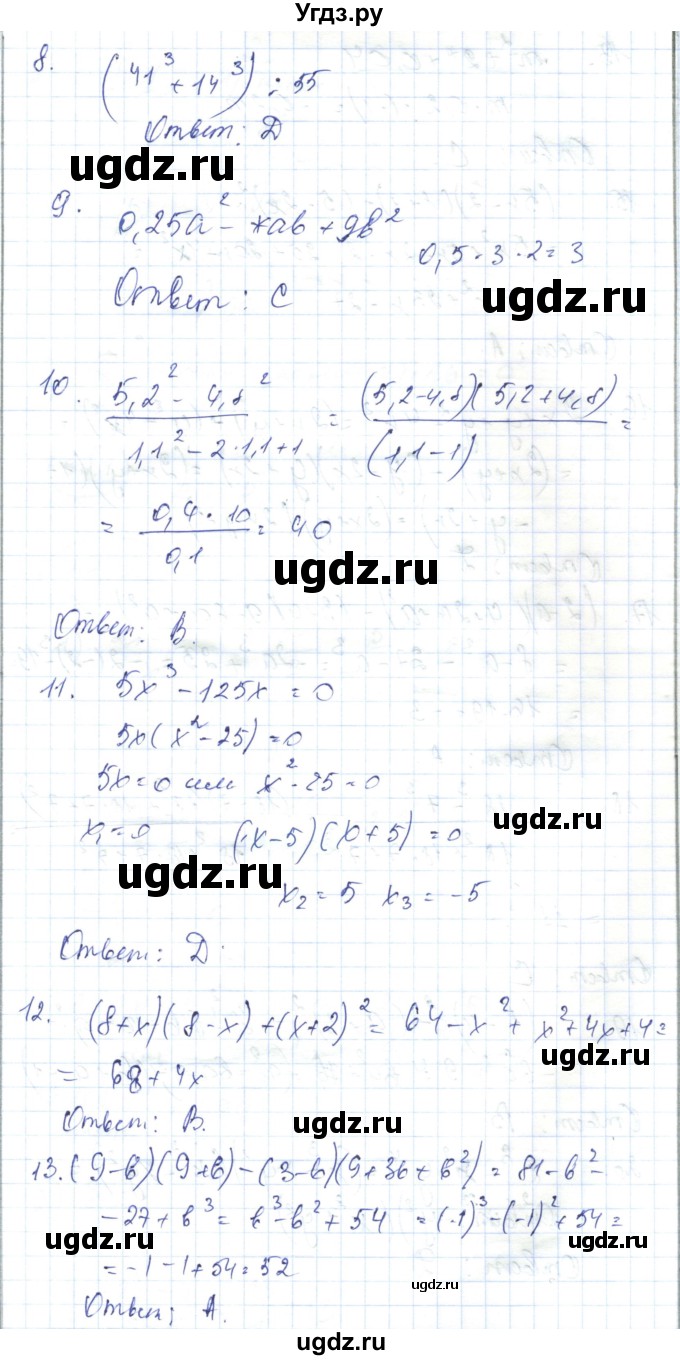 Угдз.ру
8. (41³ + 14³) : 55
Ответ: D
ugdz.ru
9. 0,25a² - *ab + 9b²
0,5 · 3 · 2 = 3
Ответ: C
ugdz.ru
10. (5,2² - 4,8²) / (1,1² - 2·1,1 + 1) = (5,2-4,8)(5,2+4,8) / (1,1-1) =
= 0,4 · 10 / 0,1 = 40
ugdz.ru
Ответ: B.
11. 5x³ - 125x = 0
5x(x² - 25) = 0
5x = 0 или x² - 25 = 0
x₁ = 0 (x-5)(x+5) = 0
ugdz.ru
ugdz.ru
x₂ = 5 x₃ = -5
Ответ: D.
12. (8+x)(8-x) + (x+2)² = 64 - x² + x² + 4x + 4 =
ugdz.ru
= 68 + 4x
Ответ: B.
ugdz.ru
13. (9-b)(9+b) - (3-b)(9+3b+b²) = 81 - b² -
- 27 + b³ = b³ - b² + 54 = (-1)³ - (-1)² + 54 =
ugdz.ru
= -1 - 1 + 54 = 52
ugdz.ru
Ответ: A.
ugdz.ru